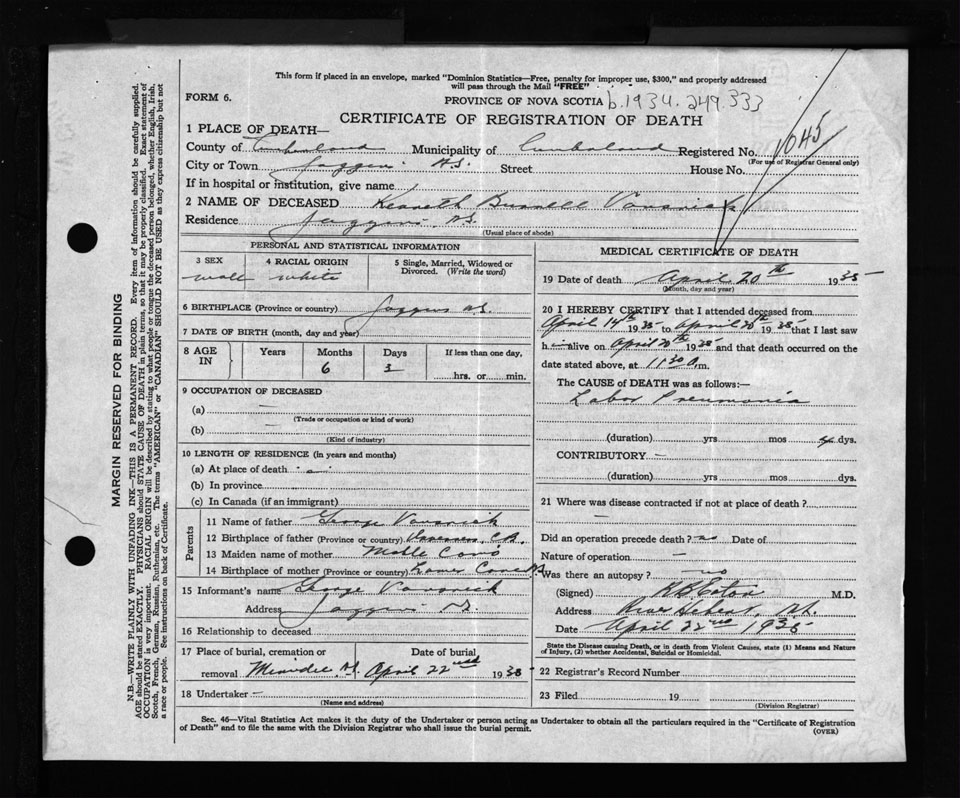 This form if placed in an envelope, marked "Dominion Statistics—Free, penalty for improper use, $300," and properly addressed
will pass through the Mail "FREE"
FORM 6.
PROVINCE OF NOVA SCOTIA b.1934.249.333
CERTIFICATE OF REGISTRATION OF DEATH
1 PLACE OF DEATH—
County of Cumberland Municipality of Cumberland Registered No. 1045
(For use of Registrar General only)
City or Town Joggins N.S. Street House No.
If in hospital or institution, give name
2 NAME OF DECEASED Kenneth Russell
Residence Joggins, N.S.
(Usual place of abode)
PERSONAL AND STATISTICAL INFORMATION
3 SEX
male
4 RACIAL ORIGIN
white
5 Single, Married, Widowed or
Divorced. (Write the word)
6 BIRTHPLACE (Province or country) Joggins N.S.
7 DATE OF BIRTH (month, day and year)
8 AGE
IN
Years Months Days If less than one day,
6 3 hrs. or min.
9 OCCUPATION OF DECEASED
(a) —
(Trade or occupation or kind of work)
(b) —
(Kind of industry)
10 LENGTH OF RESIDENCE (in years and months)
(a) At place of death
(b) In province
(c) In Canada (if an immigrant)
Parents
11 Name of father George
12 Birthplace of father (Province or country) C.B.
13 Maiden name of mother
14 Birthplace of mother (Province or country)
15 Informant's name George
Address Joggins N.S.
16 Relationship to deceased
17 Place of burial, cremation or Date of burial
removal April 22nd 1935
18 Undertaker —
(Name and address)
MEDICAL CERTIFICATE OF DEATH
19 Date of death April 20th 1935
(Month, day and year)
20 I HEREBY CERTIFY that I attended deceased from
April 14th 1935 to April 20th 1935 that I last saw
h im alive on April 20th 1935 and that death occurred on the
date stated above, at 11.30 A.m.
The CAUSE of DEATH was as follows:—
Lobar Pneumonia
(duration) yrs mos dys.
CONTRIBUTORY —
(duration) yrs mos dys.
21 Where was disease contracted if not at place of death?
—
Did an operation precede death? no Date of
Nature of operation —
Was there an autopsy? no
(Signed) Eaton M.D.
Address River Hebert, N.S.
Date April 22nd 1935
State the Disease causing Death, or in death from Violent Causes, state (1) Means and Nature
of Injury, (2) whether Accidental, Suicidal or Homicidal.
22 Registrar's Record Number
23 Filed 19
(Division Registrar)
Sec. 46—Vital Statistics Act makes it the duty of the Undertaker or person acting as Undertaker to obtain all the particulars required in the "Certificate of Registration
of Death" and to file the same with the Division Registrar who shall issue the burial permit.
(OVER)
MARGIN RESERVED FOR BINDING
N.B.—WRITE PLAINLY WITH UNFADING INK—THIS IS A PERMANENT RECORD. Every item of information should be carefully supplied.
AGE should be stated EXACTLY. PHYSICIANS should STATE CAUSE OF DEATH in plain terms, so that it may be properly classified. Exact statement of
OCCUPATION is very important. RACIAL ORIGIN will be described by stating to what people or tongue the deceased person belonged, whether English, Irish,
Scotch, French, German, Russian, Ruthenian, etc. The terms "AMERICAN" or "CANADIAN" SHOULD NOT BE USED as they express citizenship but not
a race or people. See instructions on back of Certificate.